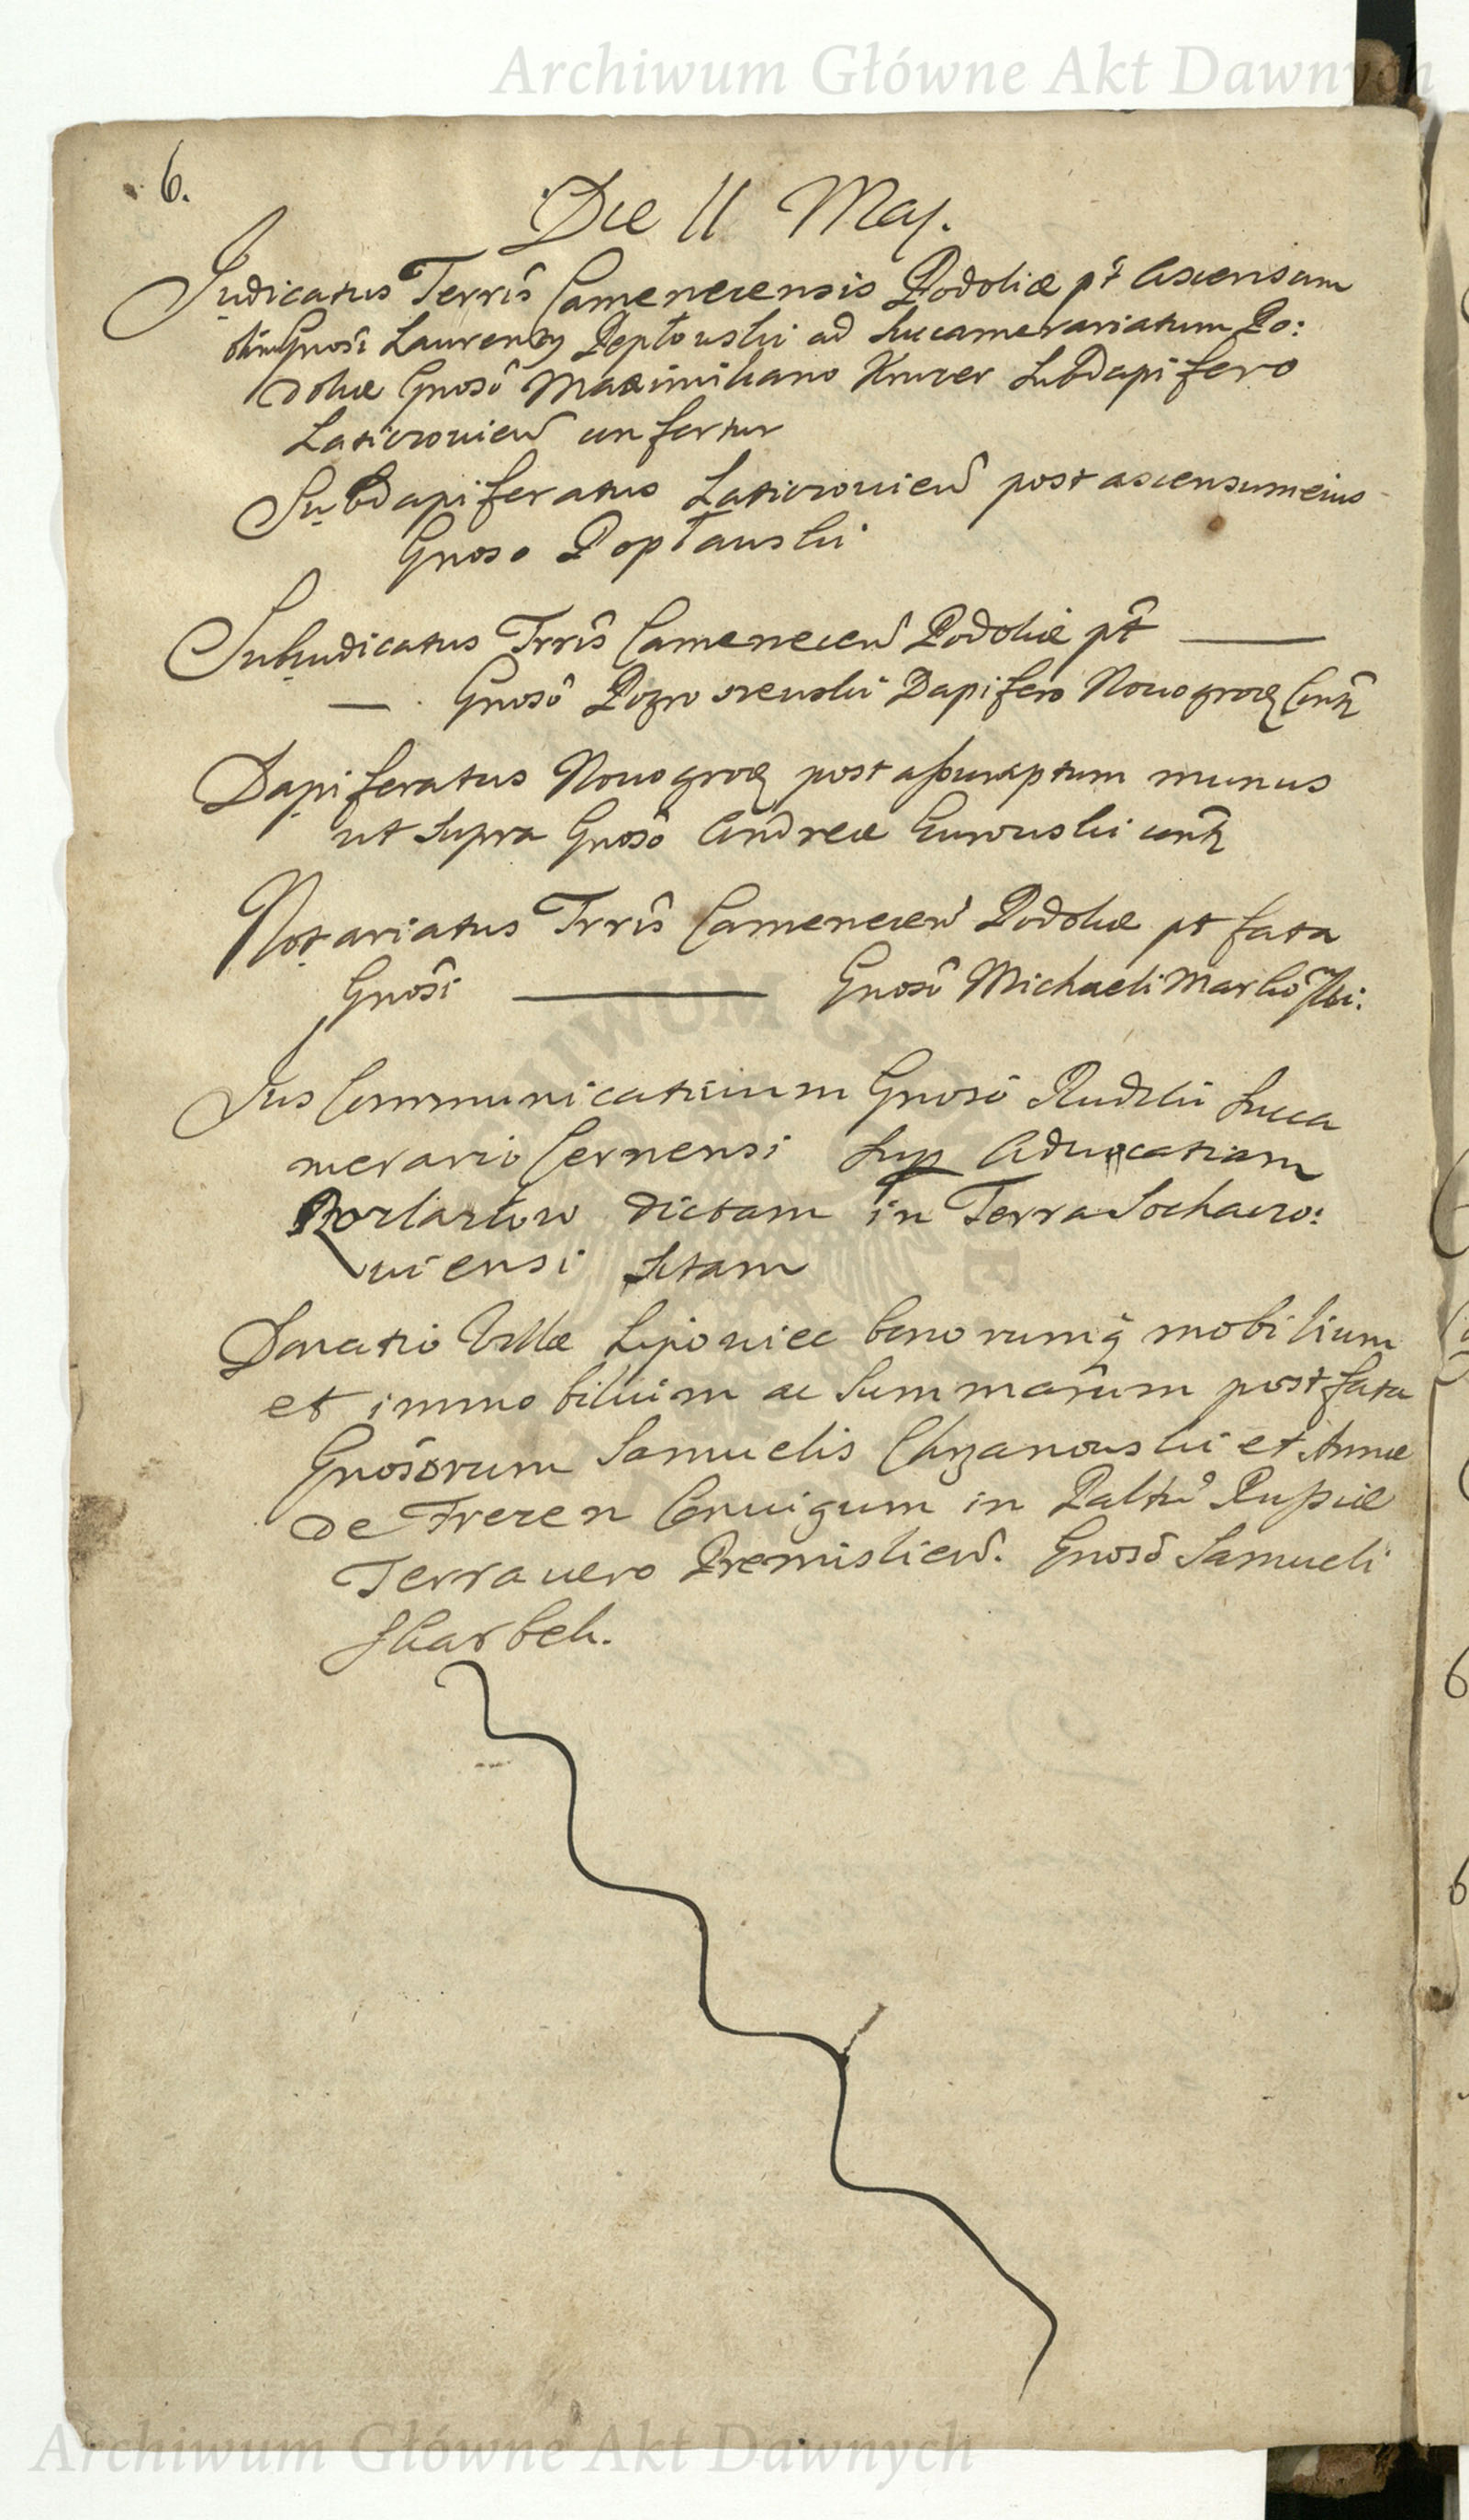 Archiwum Główne Akt Dawnych
6.
Die 11 Maÿ.
Judicatus Terrîs Camenecensis Podoliæ pt Ascensum
olim Gnosi Laurenty Peptowski ad Succamerariatum Po:
doliæ Gnosô Maximiliano Kruzer Subdapifero
Laticzovien confertur
Subdapiferatus Laticzovien post ascensum eius
Gnoso Poptawski
Subiudicatus Trrîs Camenecen Podoliæ pt ———
— . Gnosô Dapifero Nowogrod Conf
Dapiferatus Nowogrod post assumptum munus
ut supra Gnosô Andreæ Gurowski conf
Notariatus Trrîs Camenecen Podoliæ pt fata
Gnosi ——— Gnosô Michaeli
Jus Communicativum Gnosô Rudzki Succa
merario Cernensi Sup Advocatiam
dictam in Terra Sochaczo:
viensi sitam
Donatio Villæ Lipowiec bonorumq mobilium
et immobilium ac Summarum post fata
Gnosôrum Samuelis Chrzanowski et Annæ
de Frezen Coniugum in Palttu Russiæ
Terra vero Premislien. Gnosô Samueli
Skarbek.
Archiwum Główne Akt Dawnych